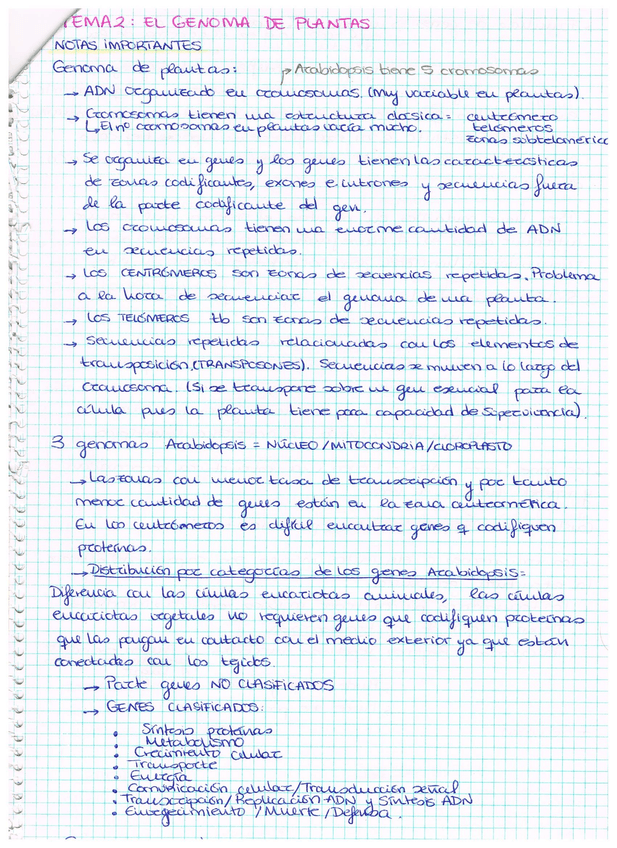 TEMA 2: EL GENOMA DE PLANTAS
NOTAS IMPORTANTES
Genoma de plantas: → Arabidopsis tiene 5 cromosomas
→ ADN organizado en cromosomas. (Muy variable en plantas).
→ Cromosomas tienen una estructura clásica: centrómero
↳ El nº cromosomas en plantas varía mucho. telómeros
zonas subteloméricas
→ Se organiza en genes y los genes tienen las características
de zonas codificantes, exones e intrones y secuencias fuera
de la parte codificante del gen.
→ Los cromosomas tienen una enorme cantidad de ADN
en secuencias repetidas.
→ LOS CENTRÓMEROS son zonas de secuencias repetidas. Problema
a la hora de secuenciar el genoma de una planta.
→ LOS TELÓMEROS tb son zonas de secuencias repetidas.
→ Secuencias repetidas relacionadas con los elementos de
transposición (TRANSPOSONES). Secuencias se mueven a lo largo del
cromosoma. (Si se transpone sobre un gen esencial para la
célula pues la planta tiene poca capacidad de supervivencia).
3 genomas Arabidopsis = NÚCLEO/MITOCONDRIA/CLOROPLASTO
→ Las zonas con menor tasa de transcripción y por tanto
menor cantidad de genes están en la zona centromérica.
En los centrómeros es difícil encontrar genes q codifiquen
proteínas.
→ Distribución por categorías de los genes Arabidopsis:
Diferencia con las células eucariotas animales, las células
eucariotas vegetales no requieren genes que codifiquen proteínas
que las pongan en contacto con el medio exterior ya que están
conectadas con los tejidos.
→ Parte genes NO CLASIFICADOS
→ GENES CLASIFICADOS:
• Síntesis proteínas
• Metabolismo
• Crecimiento celular
• Transporte
• Energía
• Comunicación celular/Transducción señal
• Transcripción/Replicación ADN y Síntesis ADN
• Envejecimiento/Muerte/Defensa.